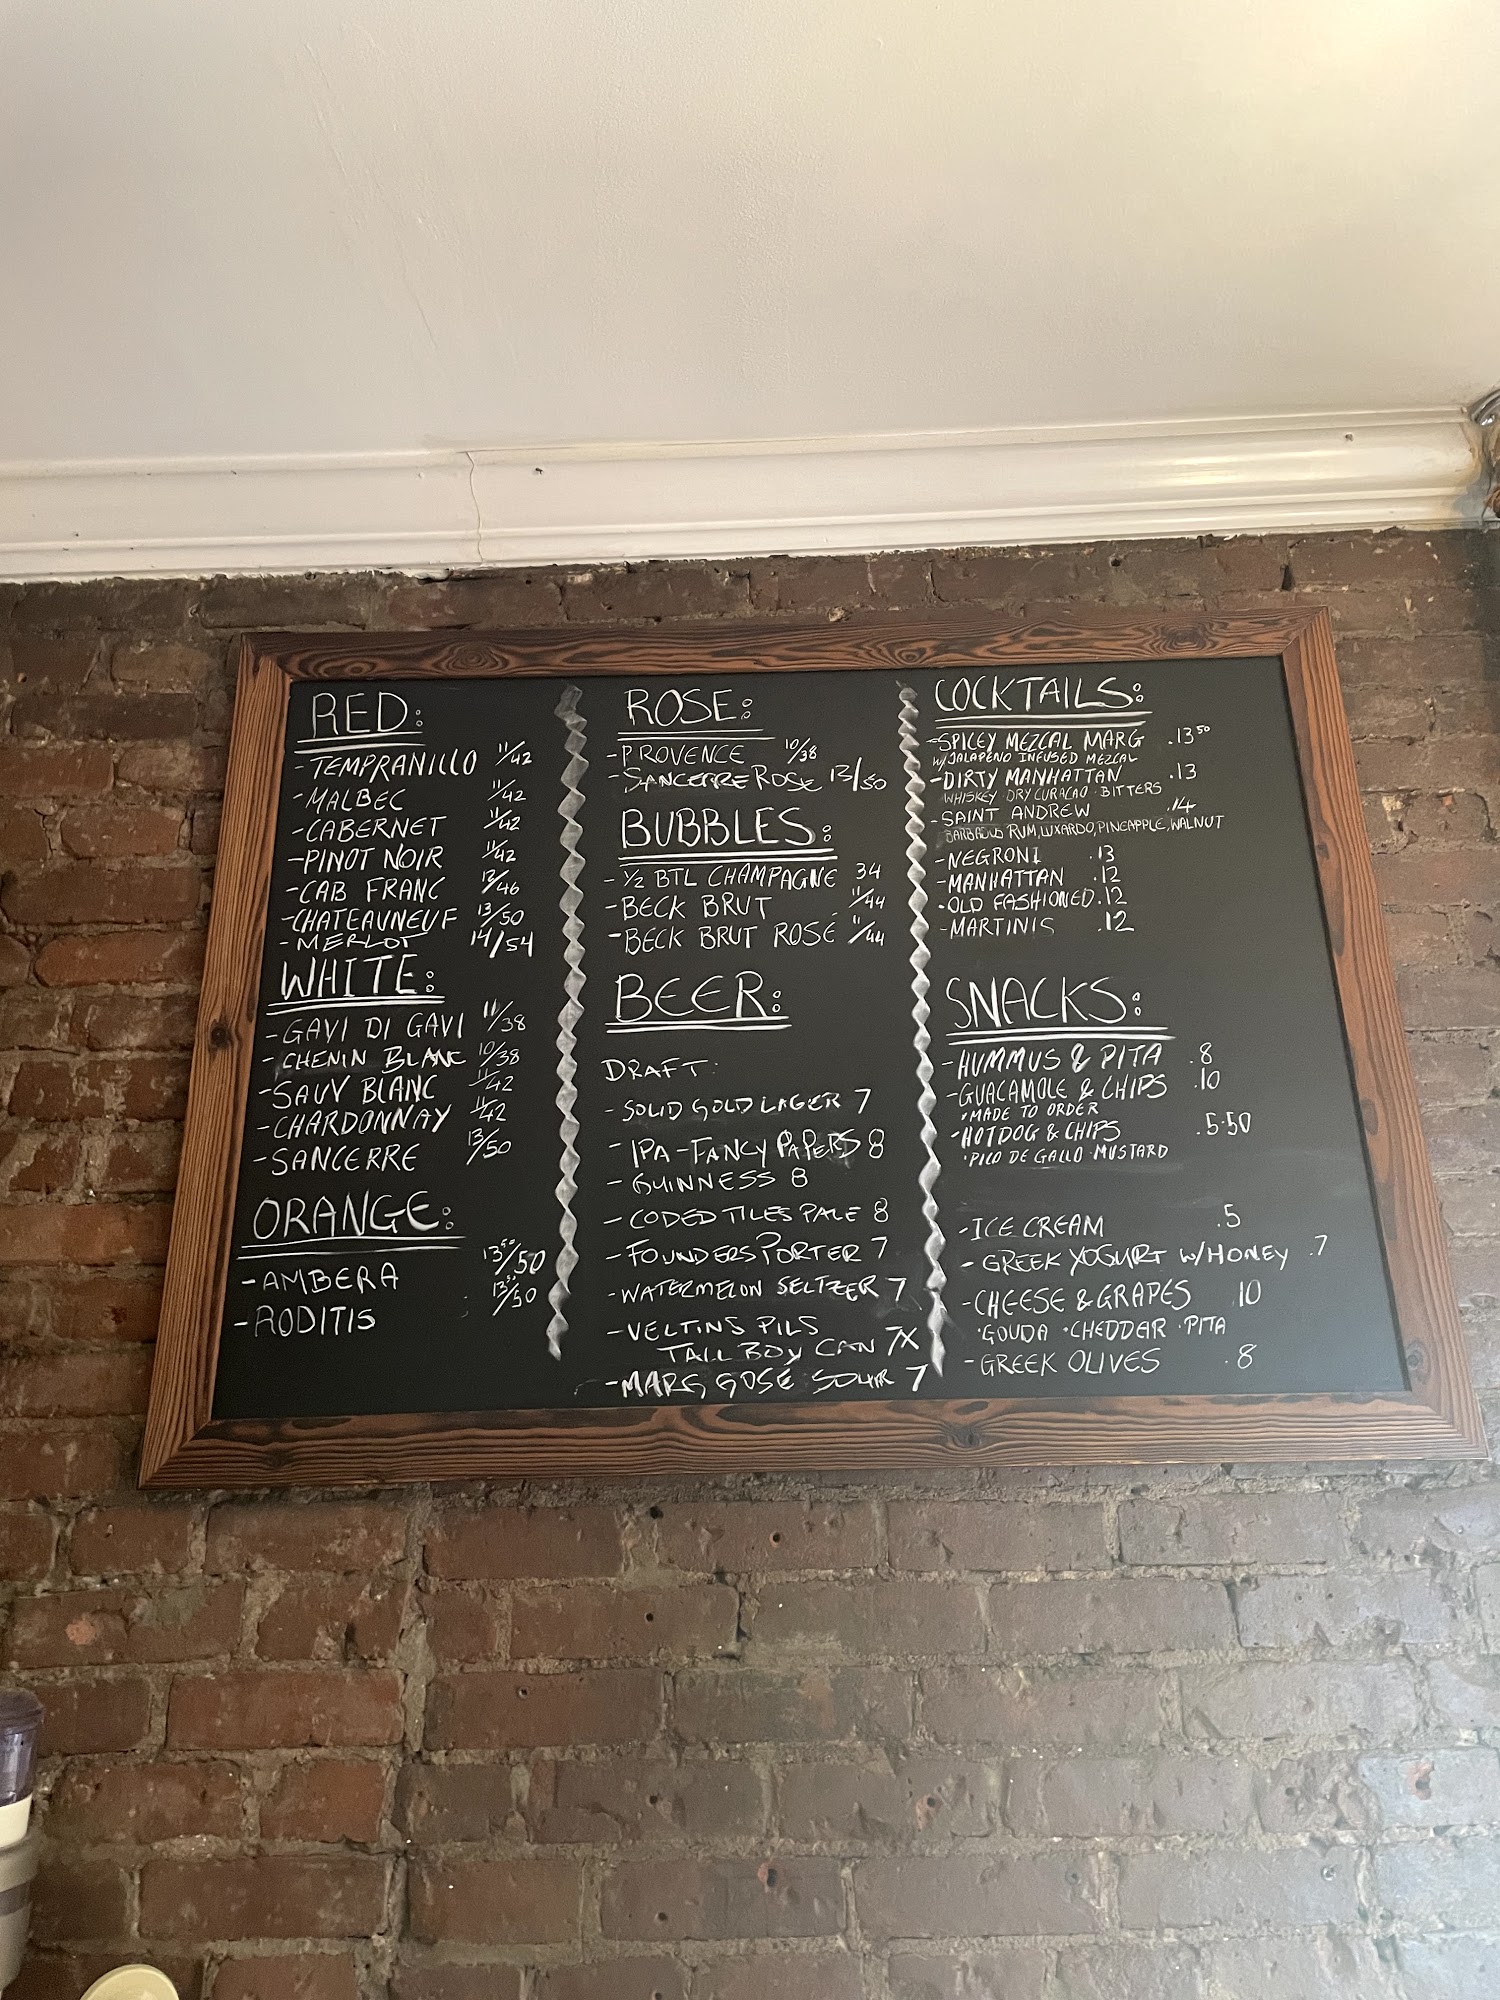 RED:
-TEMPRANILLO 11/42
-MALBEC 11/42
-CABERNET 11/42
-PINOT NOIR 11/42
-CAB FRANC 12/46
-CHATEAUNEUF 13/50
-MERLOT 14/54
WHITE:
-GAVI DI GAVI 11/38
-CHENIN BLANC 10/38
-SAUV BLANC 11/42
-CHARDONNAY 11/42
-SANCERRE 13/50
ORANGE:
-AMBERA 13⁵⁰/50
-RODITIS 13⁵⁰/50
ROSE:
-PROVENCE 10/38
-SANCERRE ROSE 13/50
BUBBLES:
-1/2 BTL CHAMPAGNE 34
-BECK BRUT 11/44
-BECK BRUT ROSE 11/44
BEER:
DRAFT:
-SOLID GOLD LAGER 7
-IPA-FANCY PAPERS 8
-GUINNESS 8
-CODED TILES PALE 8
-FOUNDERS PORTER 7
-WATERMELON SELTZER 7
-VELTINS PILS
TALL BOY CAN 7X
-MARG GOSE SOUR 7
COCKTAILS:
-SPICEY MEZCAL MARG .13⁵⁰
W/JALAPENO INFUSED MEZCAL
-DIRTY MANHATTAN .13
WHISKEY · DRY CURACAO · BITTERS
-SAINT ANDREW .14
BARBADOS RUM, LUXARDO, PINEAPPLE, WALNUT
-NEGRONI .13
-MANHATTAN .12
-OLD FASHIONED .12
-MARTINIS .12
SNACKS:
-HUMMUS & PITA .8
-GUACAMOLE & CHIPS .10
·MADE TO ORDER
-HOTDOG & CHIPS .5.50
·PICO DE GALLO · MUSTARD
-ICE CREAM .5
-GREEK YOGURT W/HONEY .7
-CHEESE & GRAPES .10
·GOUDA ·CHEDDAR ·PITA
-GREEK OLIVES .8